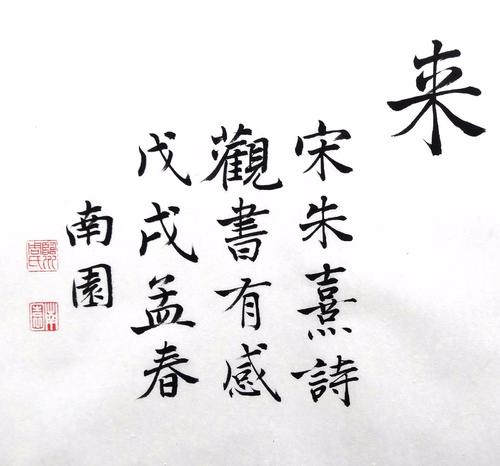 来
宋朱熹詩
觀書有感
戊戌孟春
南園